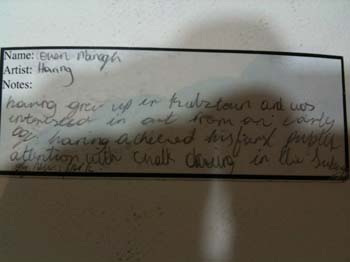 Name: Euan
Artist: Haring
Notes:
haring grew up in kutztown and was
intrested in art from an early
age haring acheived his first public
attention with chalk drawing in the Subway